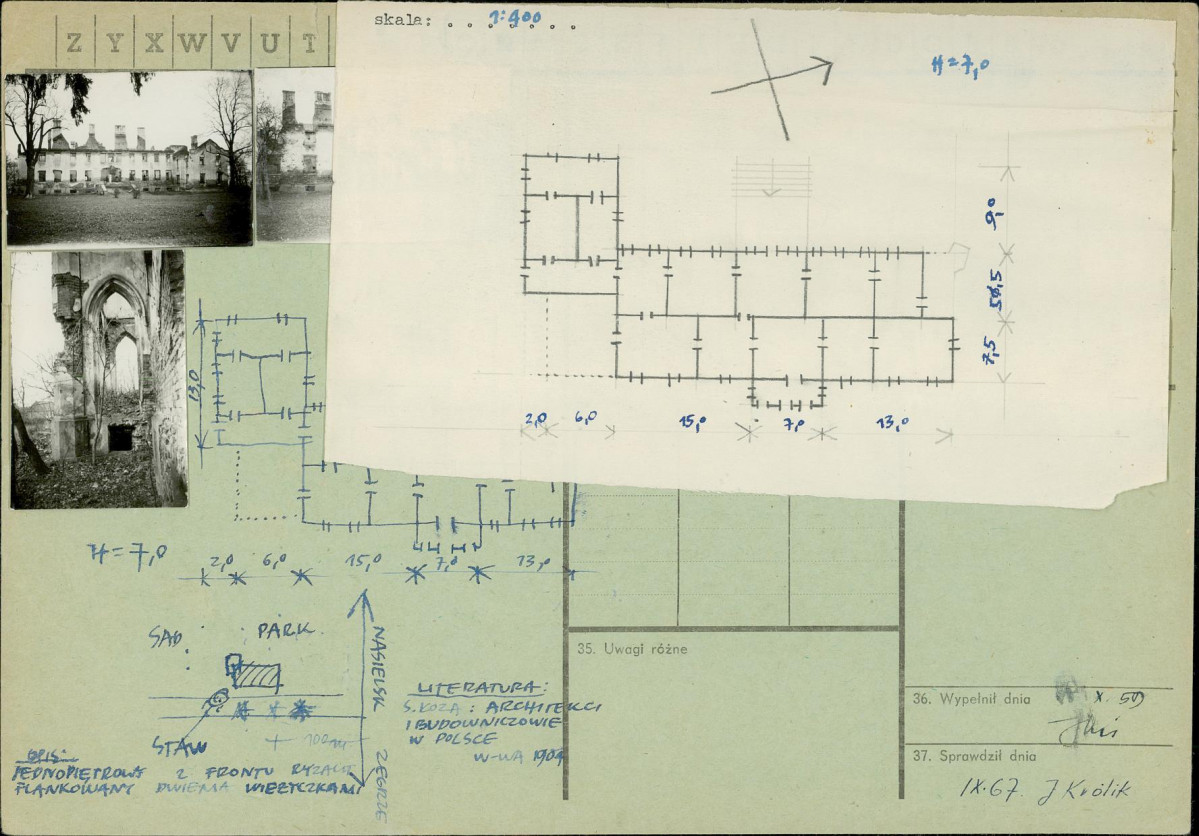 Z Y X W V U T
skala: . . 1:400 . .
H=7,0
9,0
7,5
2,0 6,0 15,0 7,0 13,0
13,0
H=7,0
2,0 6,0 15,0 7,0 13,0
SAD PARK
STAW
100m
NASIELSK ZEGRZE
LITERATURA:
S. ŁOZA: ARCHITEKCI
I BUDOWNICZOWIE
W POLSCE
W-WA
OPIS:
JEDNOPIĘTROWY Z FRONTU
FLANKOWANY DWIEMA WIEŻYCZKAMI
35. Uwagi różne
36. Wypełnił dnia X. 59
37. Sprawdził dnia
IX.67. J Królik